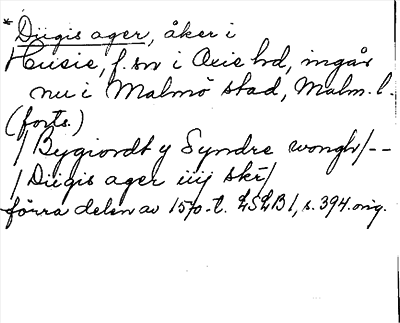 *Diigis ager, åker i
Husie, f. sn i Oxie hd, ingår
nu i Malmö stad, Malm. l.
(forts.)
/ Bygiordt y Syndre wongh/--
/ Diigis ager iiij skr/
förra delen av 1570-t. LSLB 1, s. 394. orig.